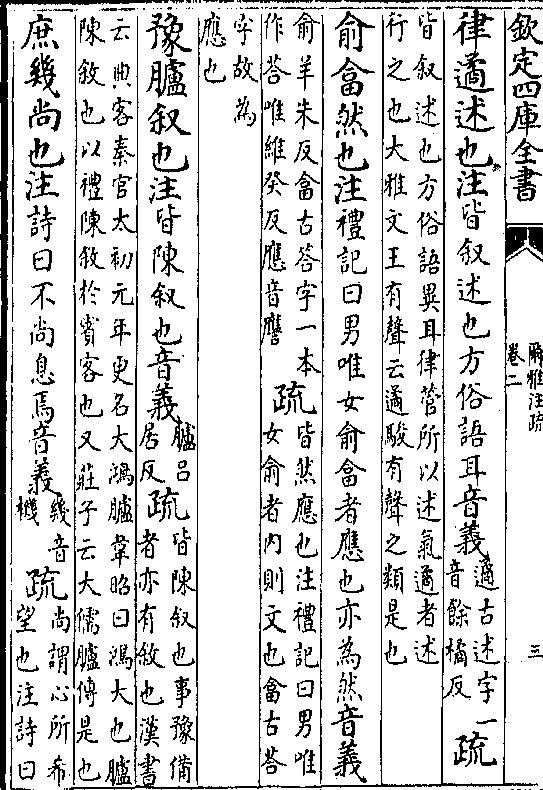 欽定四庫全書
爾雅注疏
卷二
三
律遹述也注皆叙述也方俗語耳音義遹古述字一音餘橘反疏
皆叙述也方俗語異耳律管所以述氣遹者述
行之也大雅文王有聲云遹駿有聲之類是也
俞畣然也注禮記曰男唯女俞畣者應也亦為然音義
俞羊朱反畣古荅字一本
作荅唯維癸反應音譍
疏
皆然應也注禮記曰男唯
女俞者内則文也畣古荅
字故為
應也
豫臚叙也注皆陳叙也音義臚吕居反疏皆陳叙也事豫備
者亦有敘也漢書
云典客秦官太初元年更名大鴻臚韋昭曰鴻大也臚
陳敘也以禮陳敘於賓客也又莊子云大儒臚傳是也
庶幾尚也注詩曰不尚息焉音義幾音機疏尚謂心所希
望也注詩曰